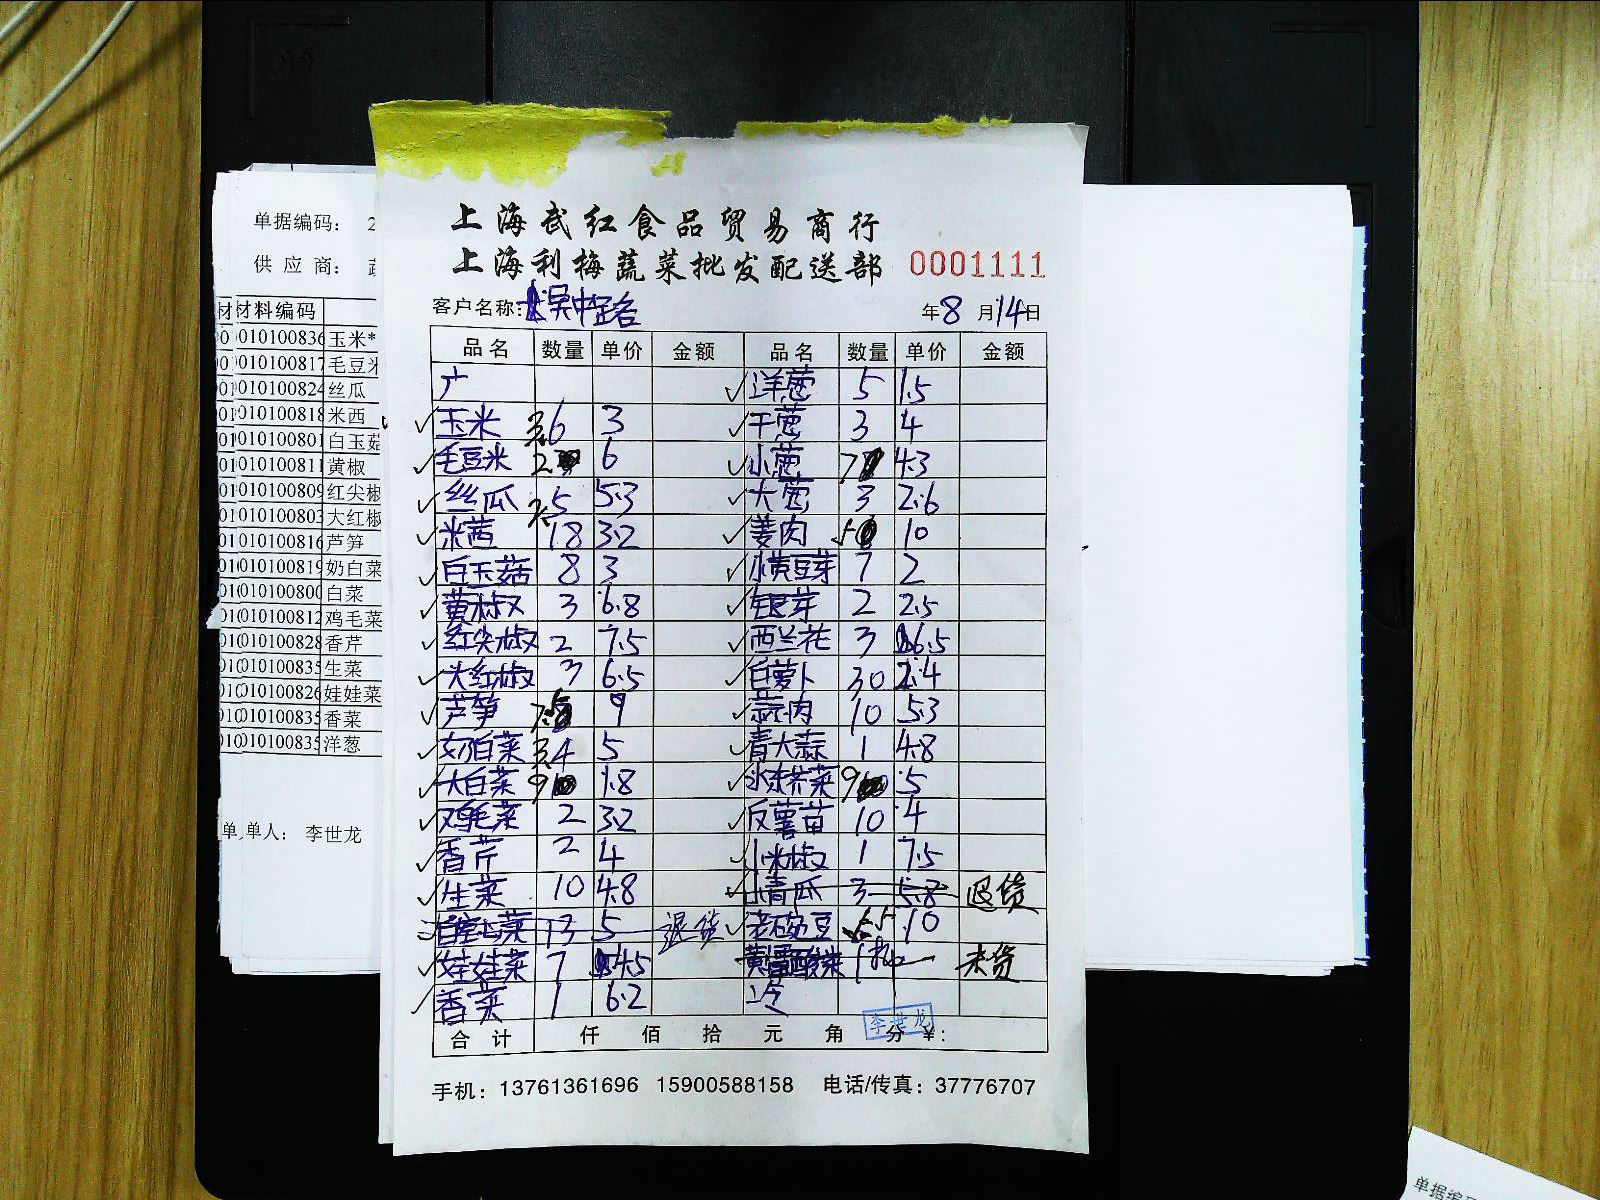 上海武红食品贸易商行
上海利梅蔬菜批发配送部 0001111
客户名称: 吴中路 年8月14日
品名 数量 单价 金额 品名 数量 单价 金额
广 洋葱 5 1.5
玉米 6 3 干葱 3 4
毛豆米 2 6 小葱 7 4.3
丝瓜 5 5.3 大葱 3 2.6
米茜 18 3.2 姜肉 5 10
白玉菇 8 3 小黄豆芽 7 2
黄椒 3 6.8 银芽 2 2.5
红尖椒 2 7.5 西兰花 3 6.5
大红椒 3 6.5 白萝卜 30 2.4
芦笋 9 蒜肉 10 5.3
奶白菜 4 5 青大蒜 1 4.8
大白菜 9 1.8 水东芥菜 9 5
鸡毛菜 2 3.2 反薯苗 10 4
香芹 2 4 小米椒 1 7.5
生菜 10 4.8 小青瓜 3 5.8 退货
13 5 退货 老豌豆 5.5 10
娃娃菜 7 4.5 酸菜 1 未货
香菜 1 6.2 冷
合计 仟 佰 拾 元 角 分 ¥:
李世龙
手机: 13761361696 15900588158 电话/传真: 37776707
单据编码: 2
供应商:
材料编码
010100836 玉米*
010100817 毛豆米
010100824 丝瓜
010100818 米西
010100801 白玉菇
01010081 黄椒
010100809 红尖椒
010100803 大红椒
010100816 芦笋
010100819 奶白菜
01010080 白菜
010100812 鸡毛菜
010100828 香芹
01010083 生菜
010100826 娃娃菜
01010083 香菜
01010083 洋葱
单人: 李世龙
单据编